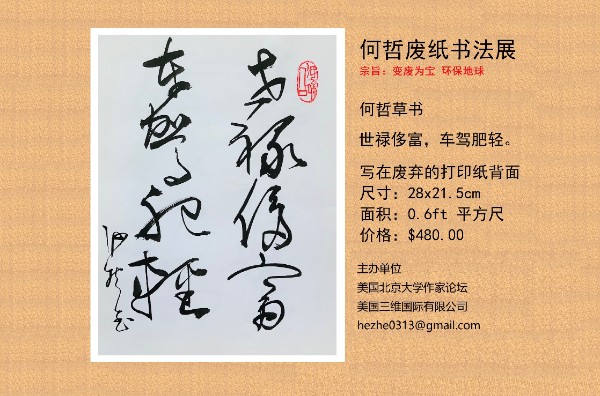 世禄侈富
车驾肥轻
何哲废纸书法展
宗旨：变废为宝 环保地球
何哲草书
世禄侈富，车驾肥轻。
写在废弃的打印纸背面
尺寸：28x21.5cm
面积：0.6ft 平方尺
价格：$480.00
主办单位
美国北京大学作家论坛
美国三维国际有限公司
hezhe0313@gmail.com